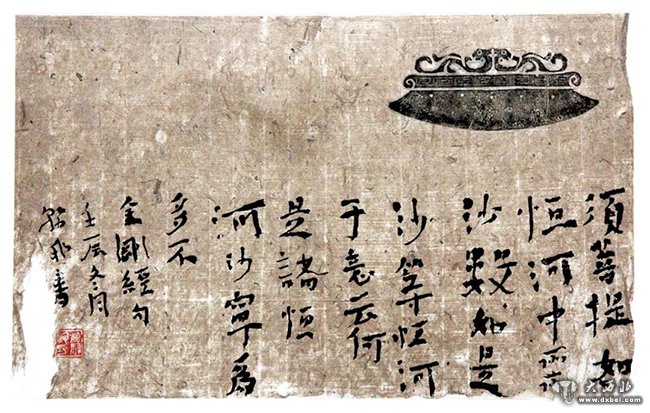 須菩提如
恒河中所有
沙數如是
沙等恒河
于意云何
是諸恒
河沙寧爲
多不
金剛經句
壬辰冬月
書
大西北
www.dxbei.com